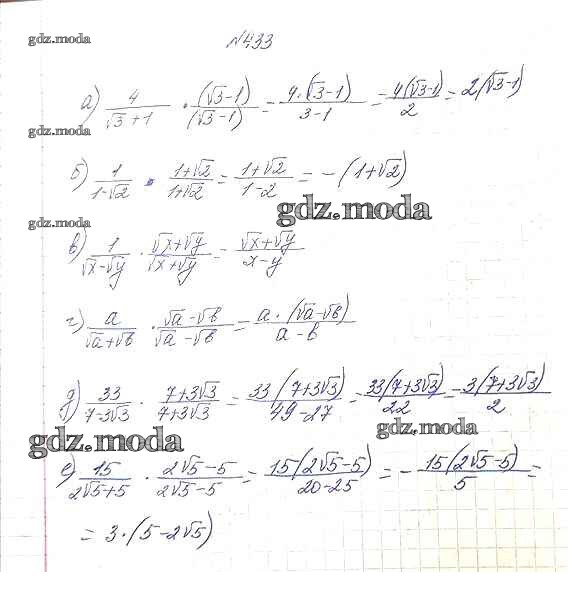 gdz.moda
№433
а) 4/(√3+1) · (√3-1)/(√3-1) = 4·(√3-1)/(3-1) = 4(√3-1)/2 = 2(√3-1)
gdz.moda
б) 1/(1-√2) · (1+√2)/(1+√2) = (1+√2)/(1-2) = -(1+√2)
gdz.moda
gdz.moda
в) 1/(√x-√y) · (√x+√y)/(√x+√y) = (√x+√y)/(x-y)
г) a/(√a+√b) · (√a-√b)/(√a-√b) = a·(√a-√b)/(a-b)
д) 33/(7-3√3) · (7+3√3)/(7+3√3) = 33(7+3√3)/(49-27) = 33(7+3√3)/22 = 3(7+3√3)/2
gdz.moda
gdz.moda
е) 15/(2√5+5) · (2√5-5)/(2√5-5) = 15(2√5-5)/(20-25) = -15(2√5-5)/5 =
= 3·(5-2√5)